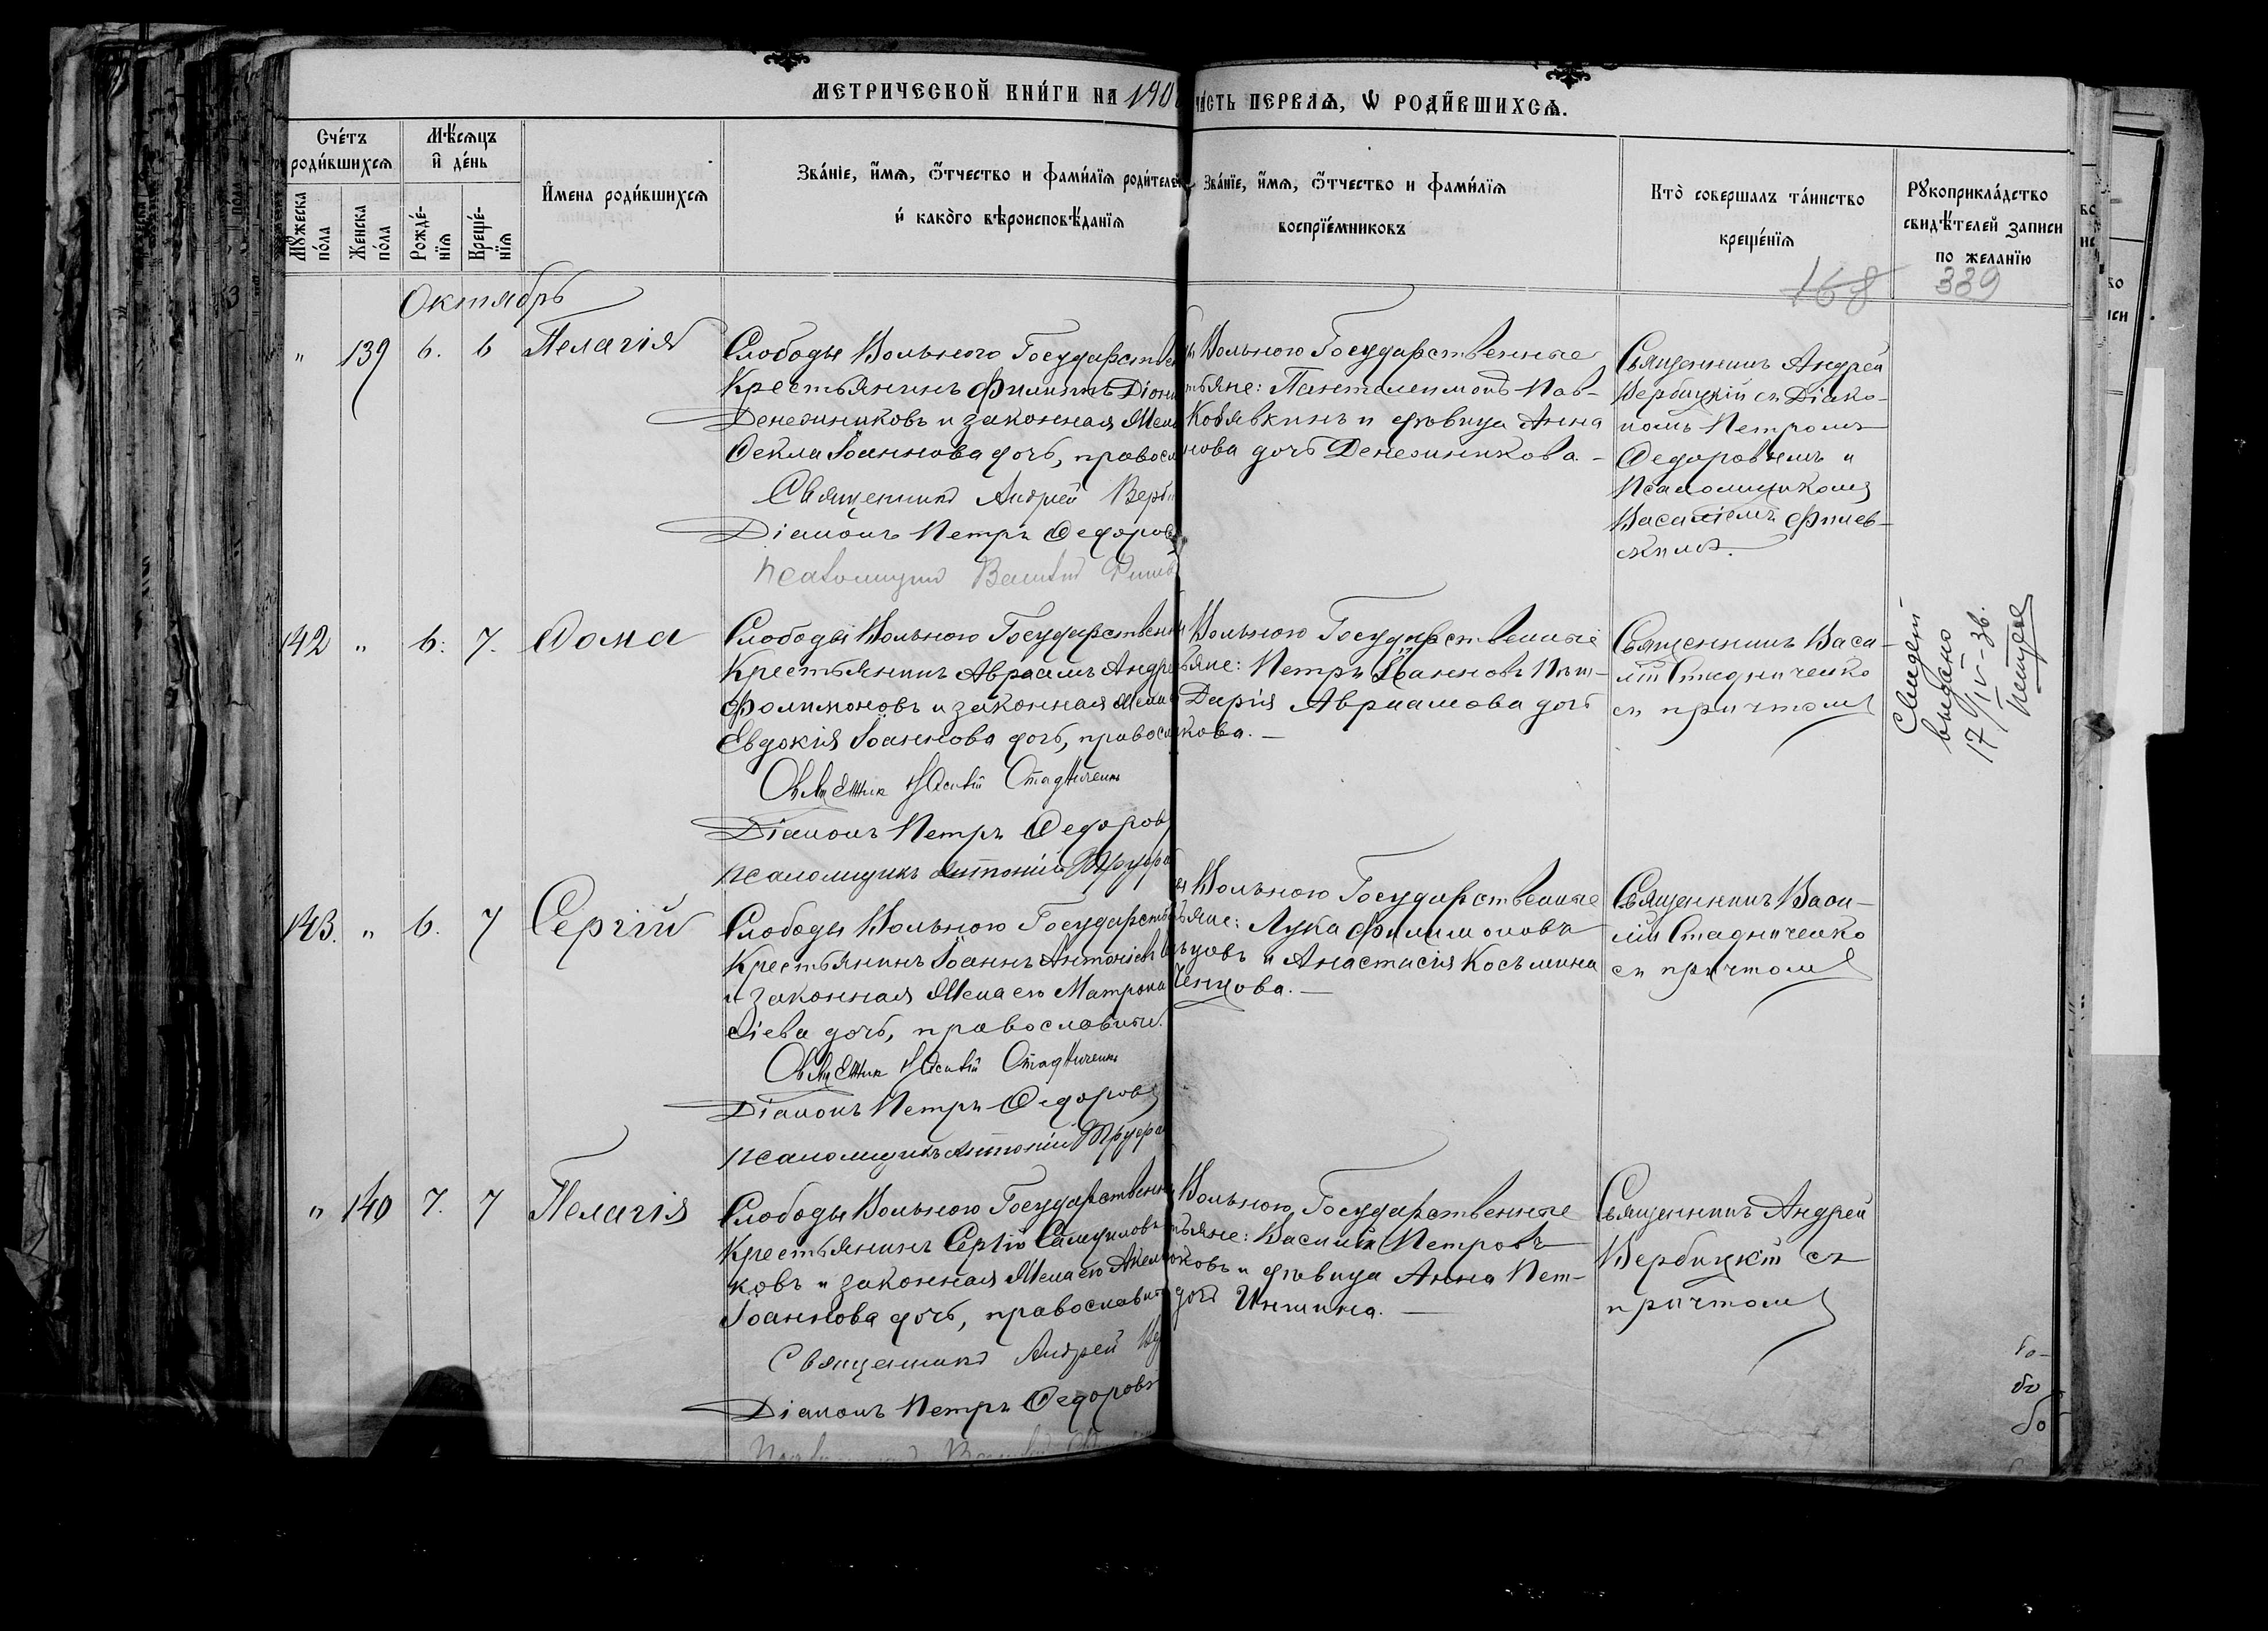 МЕТРИЧЕСКОЙ КНИ́ГИ НА 190
ЧА́СТЬ ПЕРВАЯ, Ѡ РОДИ́ВШИХСЯ.
Сче́тъ роди́вшихся
Мѣ́сяцъ и де́нь
Мꙋ́жеска по́ла
Же́нска по́ла
Рожде́-нїя
Креще́-нїя
И́мена роди́вшихся
Зва́нїе, и́мя, ѻ́тчество и фами́лїя роди́телей
и како́го вѣроисповѣ́данїя
Зва́нїе, и́мя, ѻ́тчество и фами́лїя
воспрїе́мниковъ
Кто̀ соверша́лъ та́инство
креще́нїя
Рꙋкоприкла́дство
свидѣ́телей записи
по желанїю
168 339
Октябрь
" 139 6. 6 Пелагія
Слободы Вольного Государствен
Крестьянинъ Филиппъ Діони
Денежниковъ и законная жена
Ѳекла Іоаннова дочь, правосл
Священникъ Андрей Верби
Діаконъ Петръ Ѳедоров
Псаломщикъ Василій
Вольного Государственные
тьяне: Пантелеимонъ Пав-
Кобявкинъ и дѣвица Анна
нова дочь Денежникова. -
Священникъ Андрей
Вербицкій съ Діако-
номъ Петромъ
Ѳедоровымъ и
Псаломщикомъ
Василіемъ Филев-
скимъ.
142 " 6. 7. Ѳома
Слободы Вольного Государствен
Крестьянинъ Авраамъ Андре
Филимоновъ и законная жена
Евдокія Іоаннова дочь, правосл
Священник Василій Стадниченко
Діаконъ Петръ Ѳедоров
Псаломщикъ Антоній
Вольного Государственные
ьяне: Петръ Іоанновъ
Дарія Авраамова дочь
кова. -
Священникъ Васи-
лій Стадниченко
съ причтомъ
выдано
17/IV-36.
143. " 6. 7 Сергій
Слободы Вольного Государств
Крестьянинъ Іоаннъ Антоніевъ
и законная жена его Матрона
сіева дочь, православные.
Священник Василій Стадниченко
Діаконъ Петръ Ѳедоровъ
Псаломщикъ Антоній
Вольного Государственные
ьяне: Лука Филимоновъ
и Анастасія Косьмина
Ченцова. -
Священникъ Васи-
лій Стадниченко
съ причтомъ
" 140 7. 7 Пелагія
Слободы Вольного Государственн
Крестьянинъ Сергій Самуиловъ
ковъ и законная жена его
Іоаннова дочь, православн
Священникъ Андрей
Діаконъ Петръ Ѳедоровъ
Вольного Государственные
тьяне: Василій Петровъ
и дѣвица Анна Пет-
дочь Иншина. -
Священникъ Андрей
Вербицкій съ
причтомъ